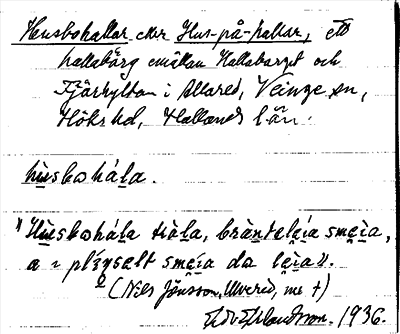 Husbohallar eller Hus-på-hallar, ett
hallabärg emellan Hallaberget och
Fjärhyltan i Allared, Veinge sn,
Höks hd, Hallands län.
husbohála.
"Husbohála tiòla, bràntelęía smęìa,
a i plżgsęlt smęìa da lęìa".
(Nils Jönsson, Ulvered, ms †)
1936.